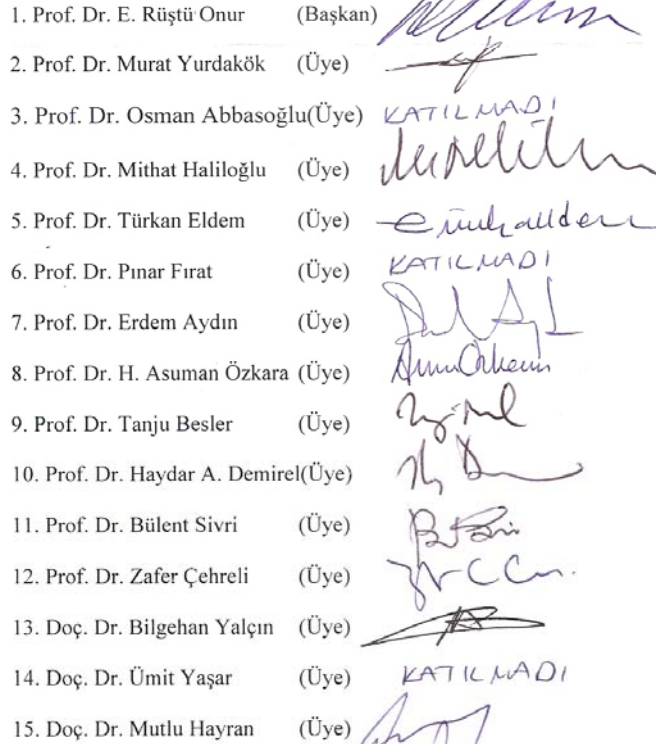 1. Prof. Dr. E. Rüştü Onur (Başkan)
2. Prof. Dr. Murat Yurdakök (Üye)
3. Prof. Dr. Osman Abbasoğlu(Üye) KATILMADI
4. Prof. Dr. Mithat Haliloğlu (Üye)
5. Prof. Dr. Türkan Eldem (Üye)
6. Prof. Dr. Pınar Fırat (Üye) KATILMADI
7. Prof. Dr. Erdem Aydın (Üye)
8. Prof. Dr. H. Asuman Özkara (Üye)
9. Prof. Dr. Tanju Besler (Üye)
10. Prof. Dr. Haydar A. Demirel(Üye)
11. Prof. Dr. Bülent Sivri (Üye)
12. Prof. Dr. Zafer Çehreli (Üye)
13. Doç. Dr. Bilgehan Yalçın (Üye)
14. Doç. Dr. Ümit Yaşar (Üye) KATILMADI
15. Doç. Dr. Mutlu Hayran (Üye)